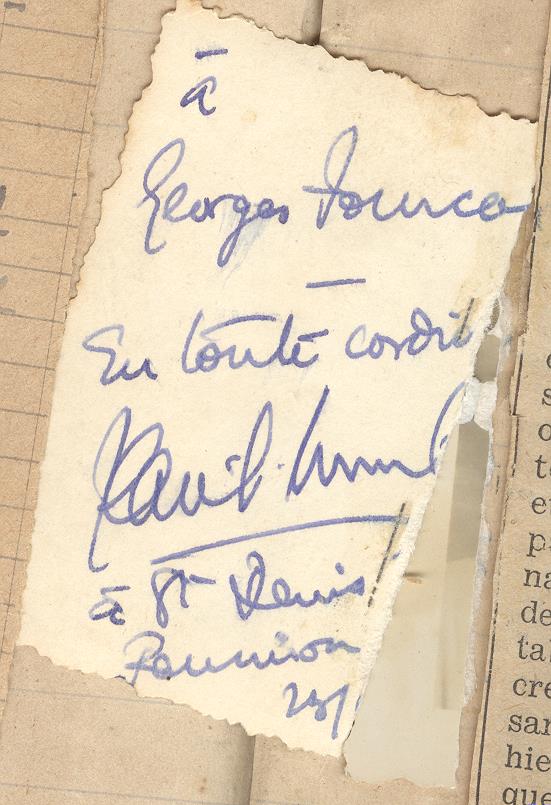 à
Georges Fourca
En toute cordi
à St Denis
Réunion
23/
s
d
t
e
p
na
de
ta
cre
san
hie
que